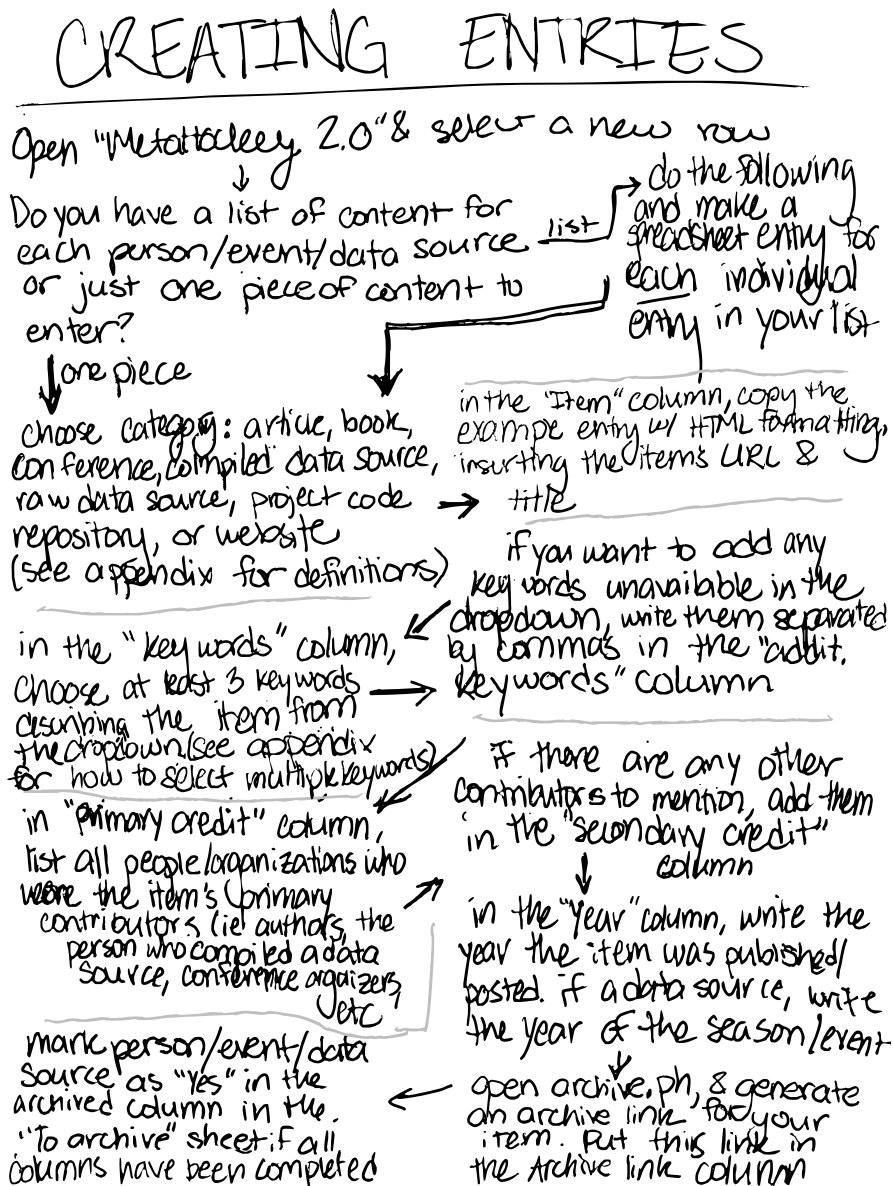 CREATING ENTRIES
Open "Metahockey 2.0" & select a new row
Do you have a list of content for
each person/event/data source
or just one piece of content to
enter?
list
do the following
and make a
spreadsheet entry for
each individual
entry in your list
one piece
choose category: article, book,
conference, compiled data source,
raw data source, project code
repository, or website
(see appendix for definitions)
in the "Item" column, copy the
example entry w/ HTML formatting,
insurting the item's URL &
title
in the "keywords" column,
choose at least 3 keywords
describing the item from
the dropdown (see appendix
for how to select multiple keywords)
if you want to add any
keywords unavailable in the
dropdown, write them separated
by commas in the "addit.
keywords" column
in "primary credit" column,
list all people/organizations who
were the item's primary
contributors (ie authors, the
person who compiled a data
source, conference orgaizers,
etc
if there are any other
contributors to mention, add them
in the "secondary credit"
column
in the "Year" column, write the
year the item was published/
posted. if a data source, write
the year of the season/event
open archive.ph, & generate
an archive link for your
item. Put this link in
the Archive link column
mark person/event/data
source as "Yes" in the
archived column in the.
"To archive" sheet if all
columns have been completed